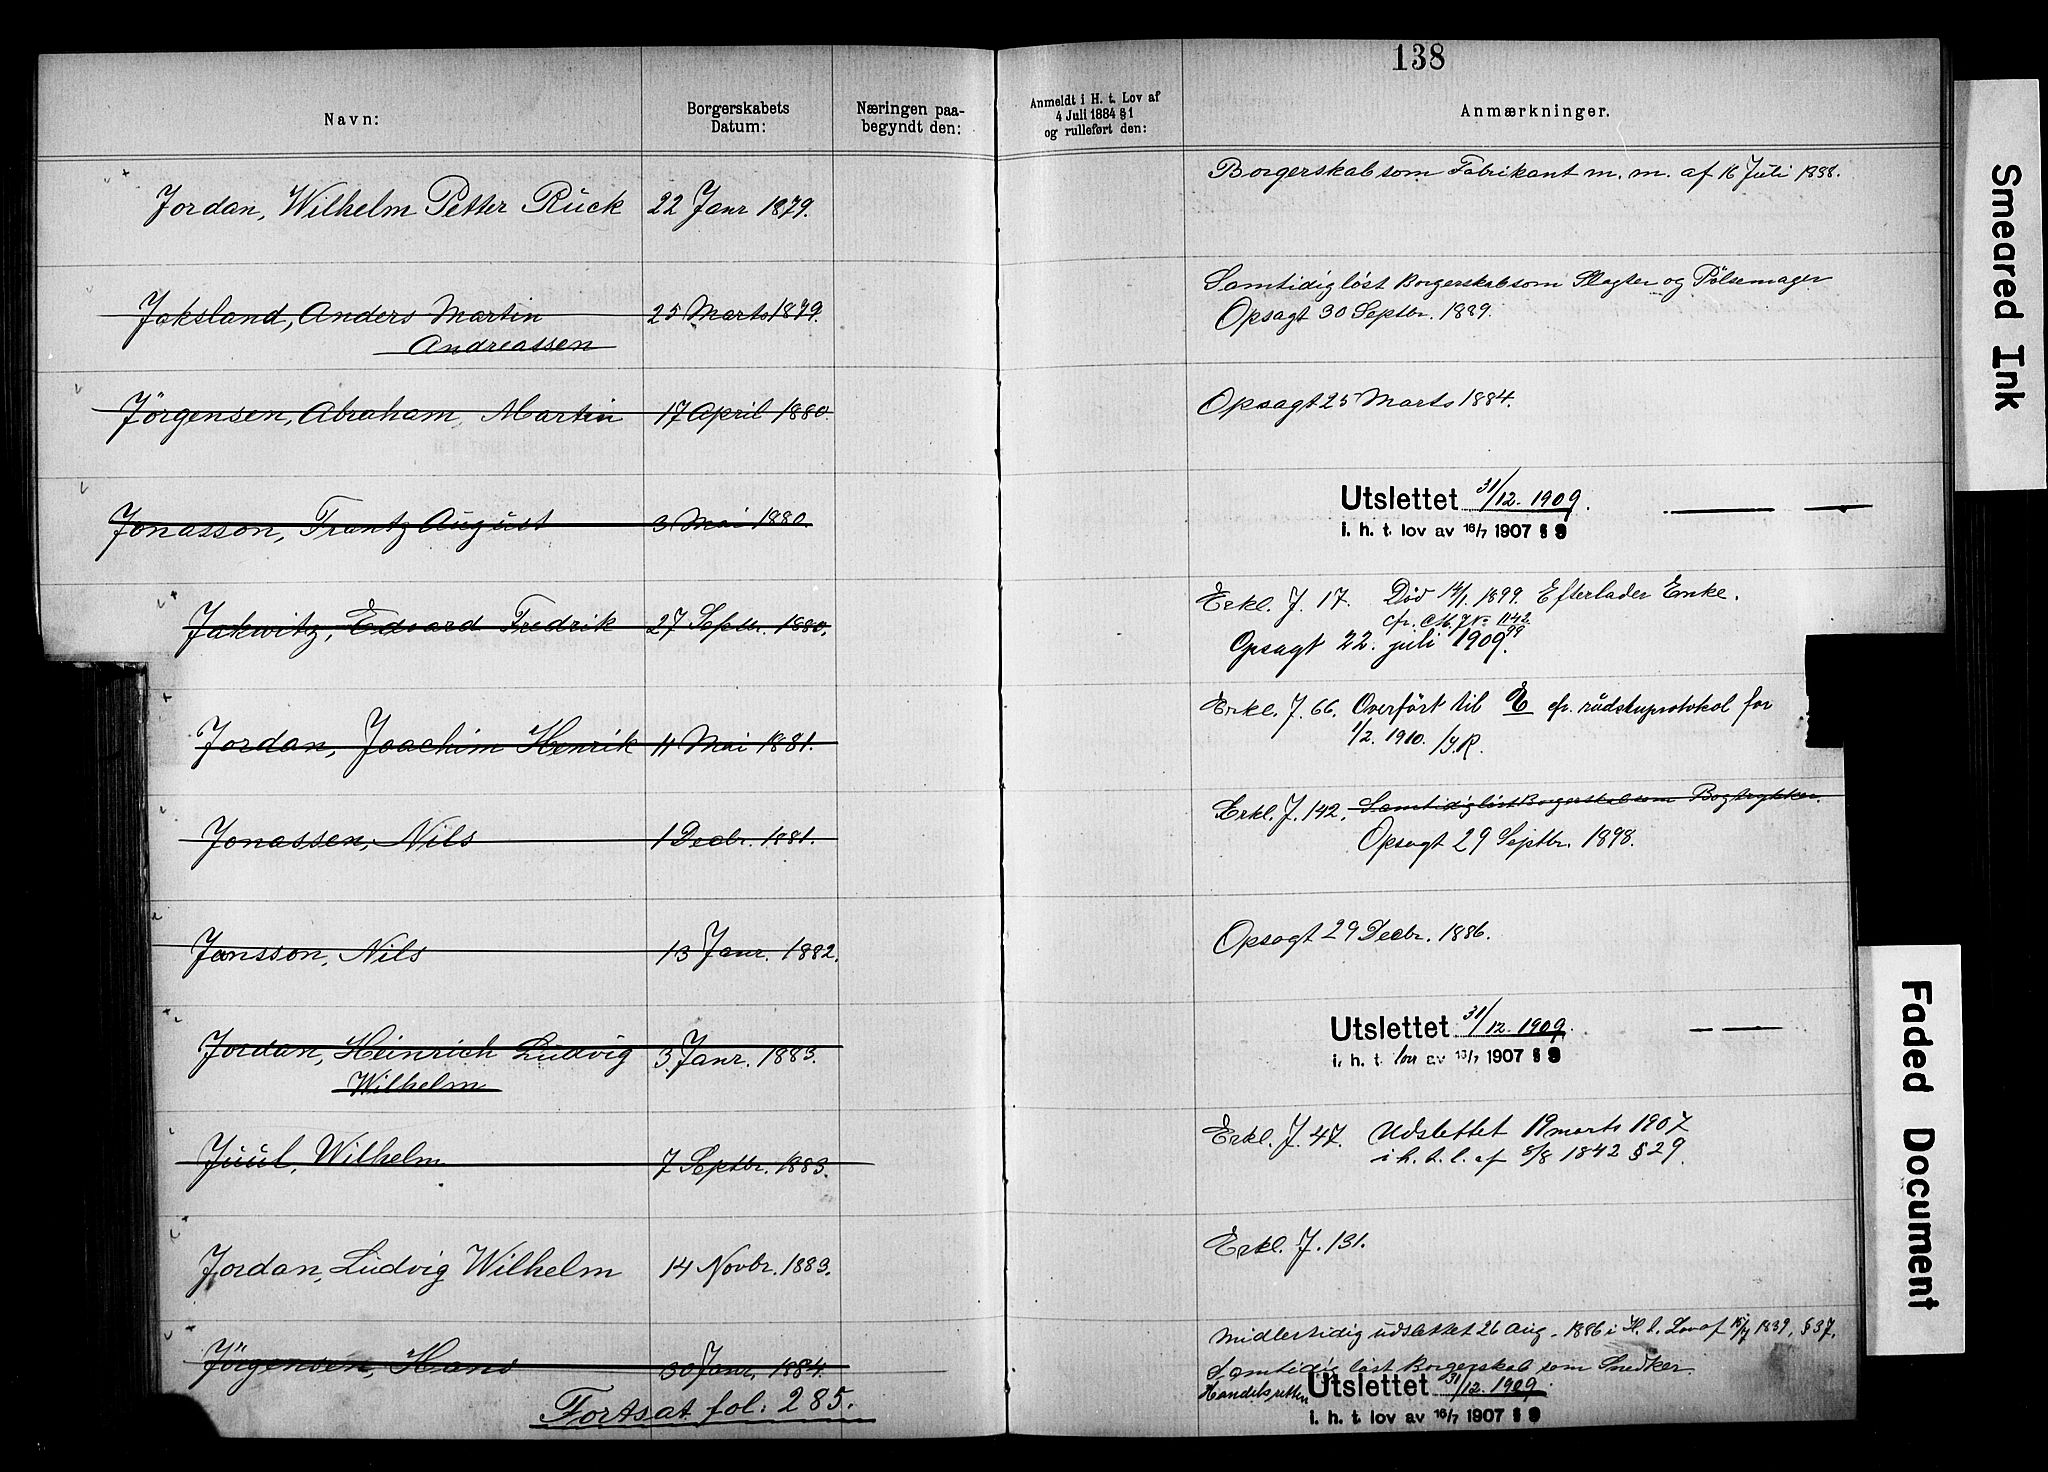 138
Navn:
Borgerskabets Datum:
Næringen paa-begyndt den:
Anmeldt i H. t. Lov af 4 Juli 1884 § 1 og rulleført den:
Anmærkninger.
Jordan, Wilhelm Petter Rück 22 Janr 1879. Borgerskab som Fabrikant m. m. af 16 Juli 1838.
Jaksland, Anders Martin 25 Marts 1879. Samtidig løst Borgerskab som Slagter og Pølsemager
Andreassen Opsagt 30 Septbr. 1889.
Jørgensen, Abraham, Martin 17 April 1880. Opsagt 25 Marts 1884.
Jonasson, Frantz August 3 Mai 1880. Utslettet 31/12. 1909.
i. h. t. lov av 16/7 1907 § 9
Jakwitz, Edvard Fredrik 27 Septbr. 1880. Erkl. J. 17. Død 14/1. 1899. Efterlader Enke.
Opsagt 22. juli 1909.
Jordan, Joachim Henrik 11 Mai 1881. Erkl. J. 66. Overført til E cfr. rådstuprotokol for
1/2. 1910. /J.R.
Jonassen, Nils 1 Decbr. 1881. Erkl. J. 142. Samtidig løst Borgerskab som Bogtrykker.
Opsagt 29 Septbr. 1898.
Jansson, Nils 13 Janr. 1882. Opsagt 29 Decbr. 1886.
Jordan, Heinrich Ludvig 3 Janr. 1883. Utslettet 31/12. 1909.
Wilhelm i. h. t. lov av 16/7 1907 § 9
Juul, Wilhelm 7 Septbr. 1883. Erkl. J. 47. Udslettet 19 marts 1907
i h. t. l. af 8/8 1842 § 29.
Jordan, Ludvig Wilhelm 14 Novbr. 1883. Erkl. J. 131.
Midlertidig udslettet 26 Aug. 1886 i H. t. Lov af 15/7 1839, § 37.
Jørgensen, Hans 30 Janr. 1884. Samtidig løst Borgerskab som Snedker.
Handelsretten Utslettet 31/12. 1909
i. h. t. lov av 16/7 1907 § 9
Fortsat fol. 285.
Smeared Ink
Faded Document